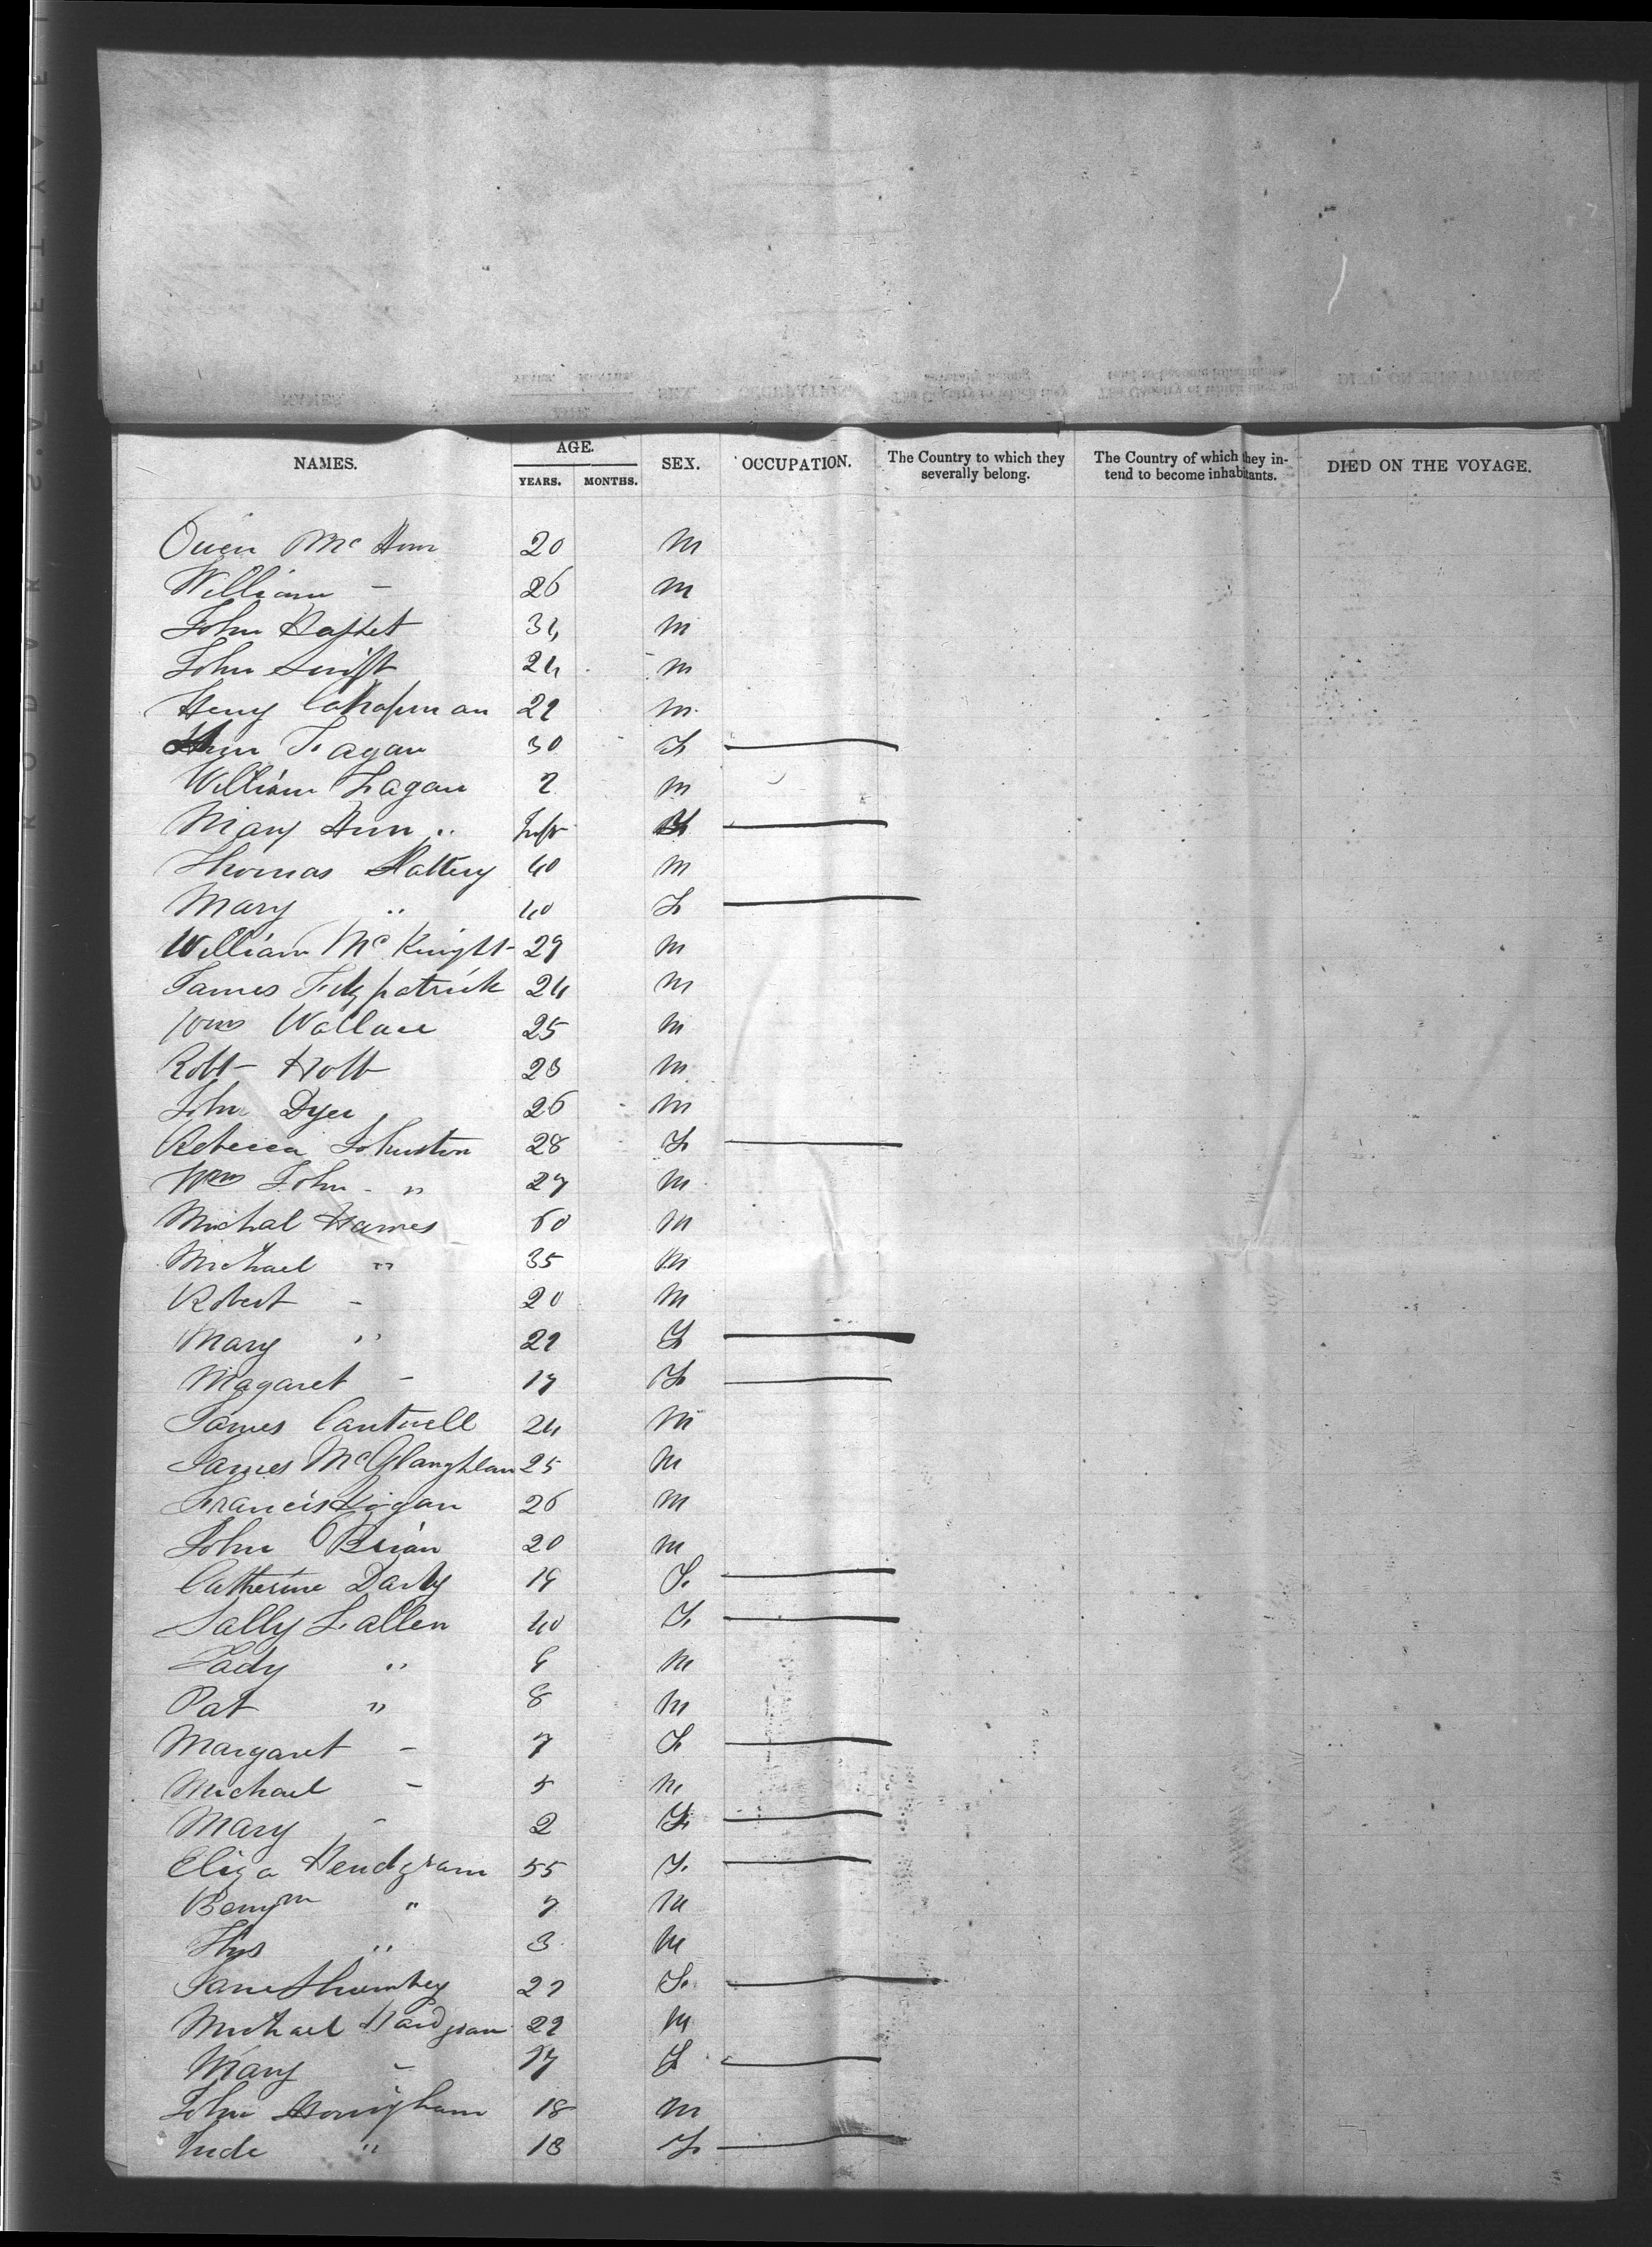 NAMES. AGE. SEX. OCCUPATION. The Country to which they severally belong. The Country of which they intend to become inhabitants. DIED ON THE VOYAGE.
YEARS. MONTHS.
Owen Mc 20 M
William - 26 M
John 34 M
John Swift 24 M
Henry Chapman 22 M
Ann Fagan 30 F
William Fagan 2 M
Mary Ann " Inft F
Thomas Slattery 40 M
Mary " 40 F
William McKnight 29 M
James Fitzpatrick 24 M
Wm Wallace 25 M
Robt Holt 23 M
John Dyer 26 M
Rebecca Johnston 28 F
Wm John - " 27 M
Michal Hames 60 M
Michael " 35 M
Robert - 20 M
Mary " 22 F
Magaret - 17 F
James Cantwell 24 M
James McGlaughlan 25 M
Francis Ligan 26 M
John OBrian 20 M
Catherine Darby 19 F
Sally Fallen 40 F
" 9 M
Pat " 8 M
Margaret - 7 F
Michael - 5 M
Mary - 2 F
Eliza Hendgram 55 F
Benjm " 7 M
Ths " 3 M
Jane 22 F
Michael 22 M
Mary - 17 F
John 18 M
" 18 F